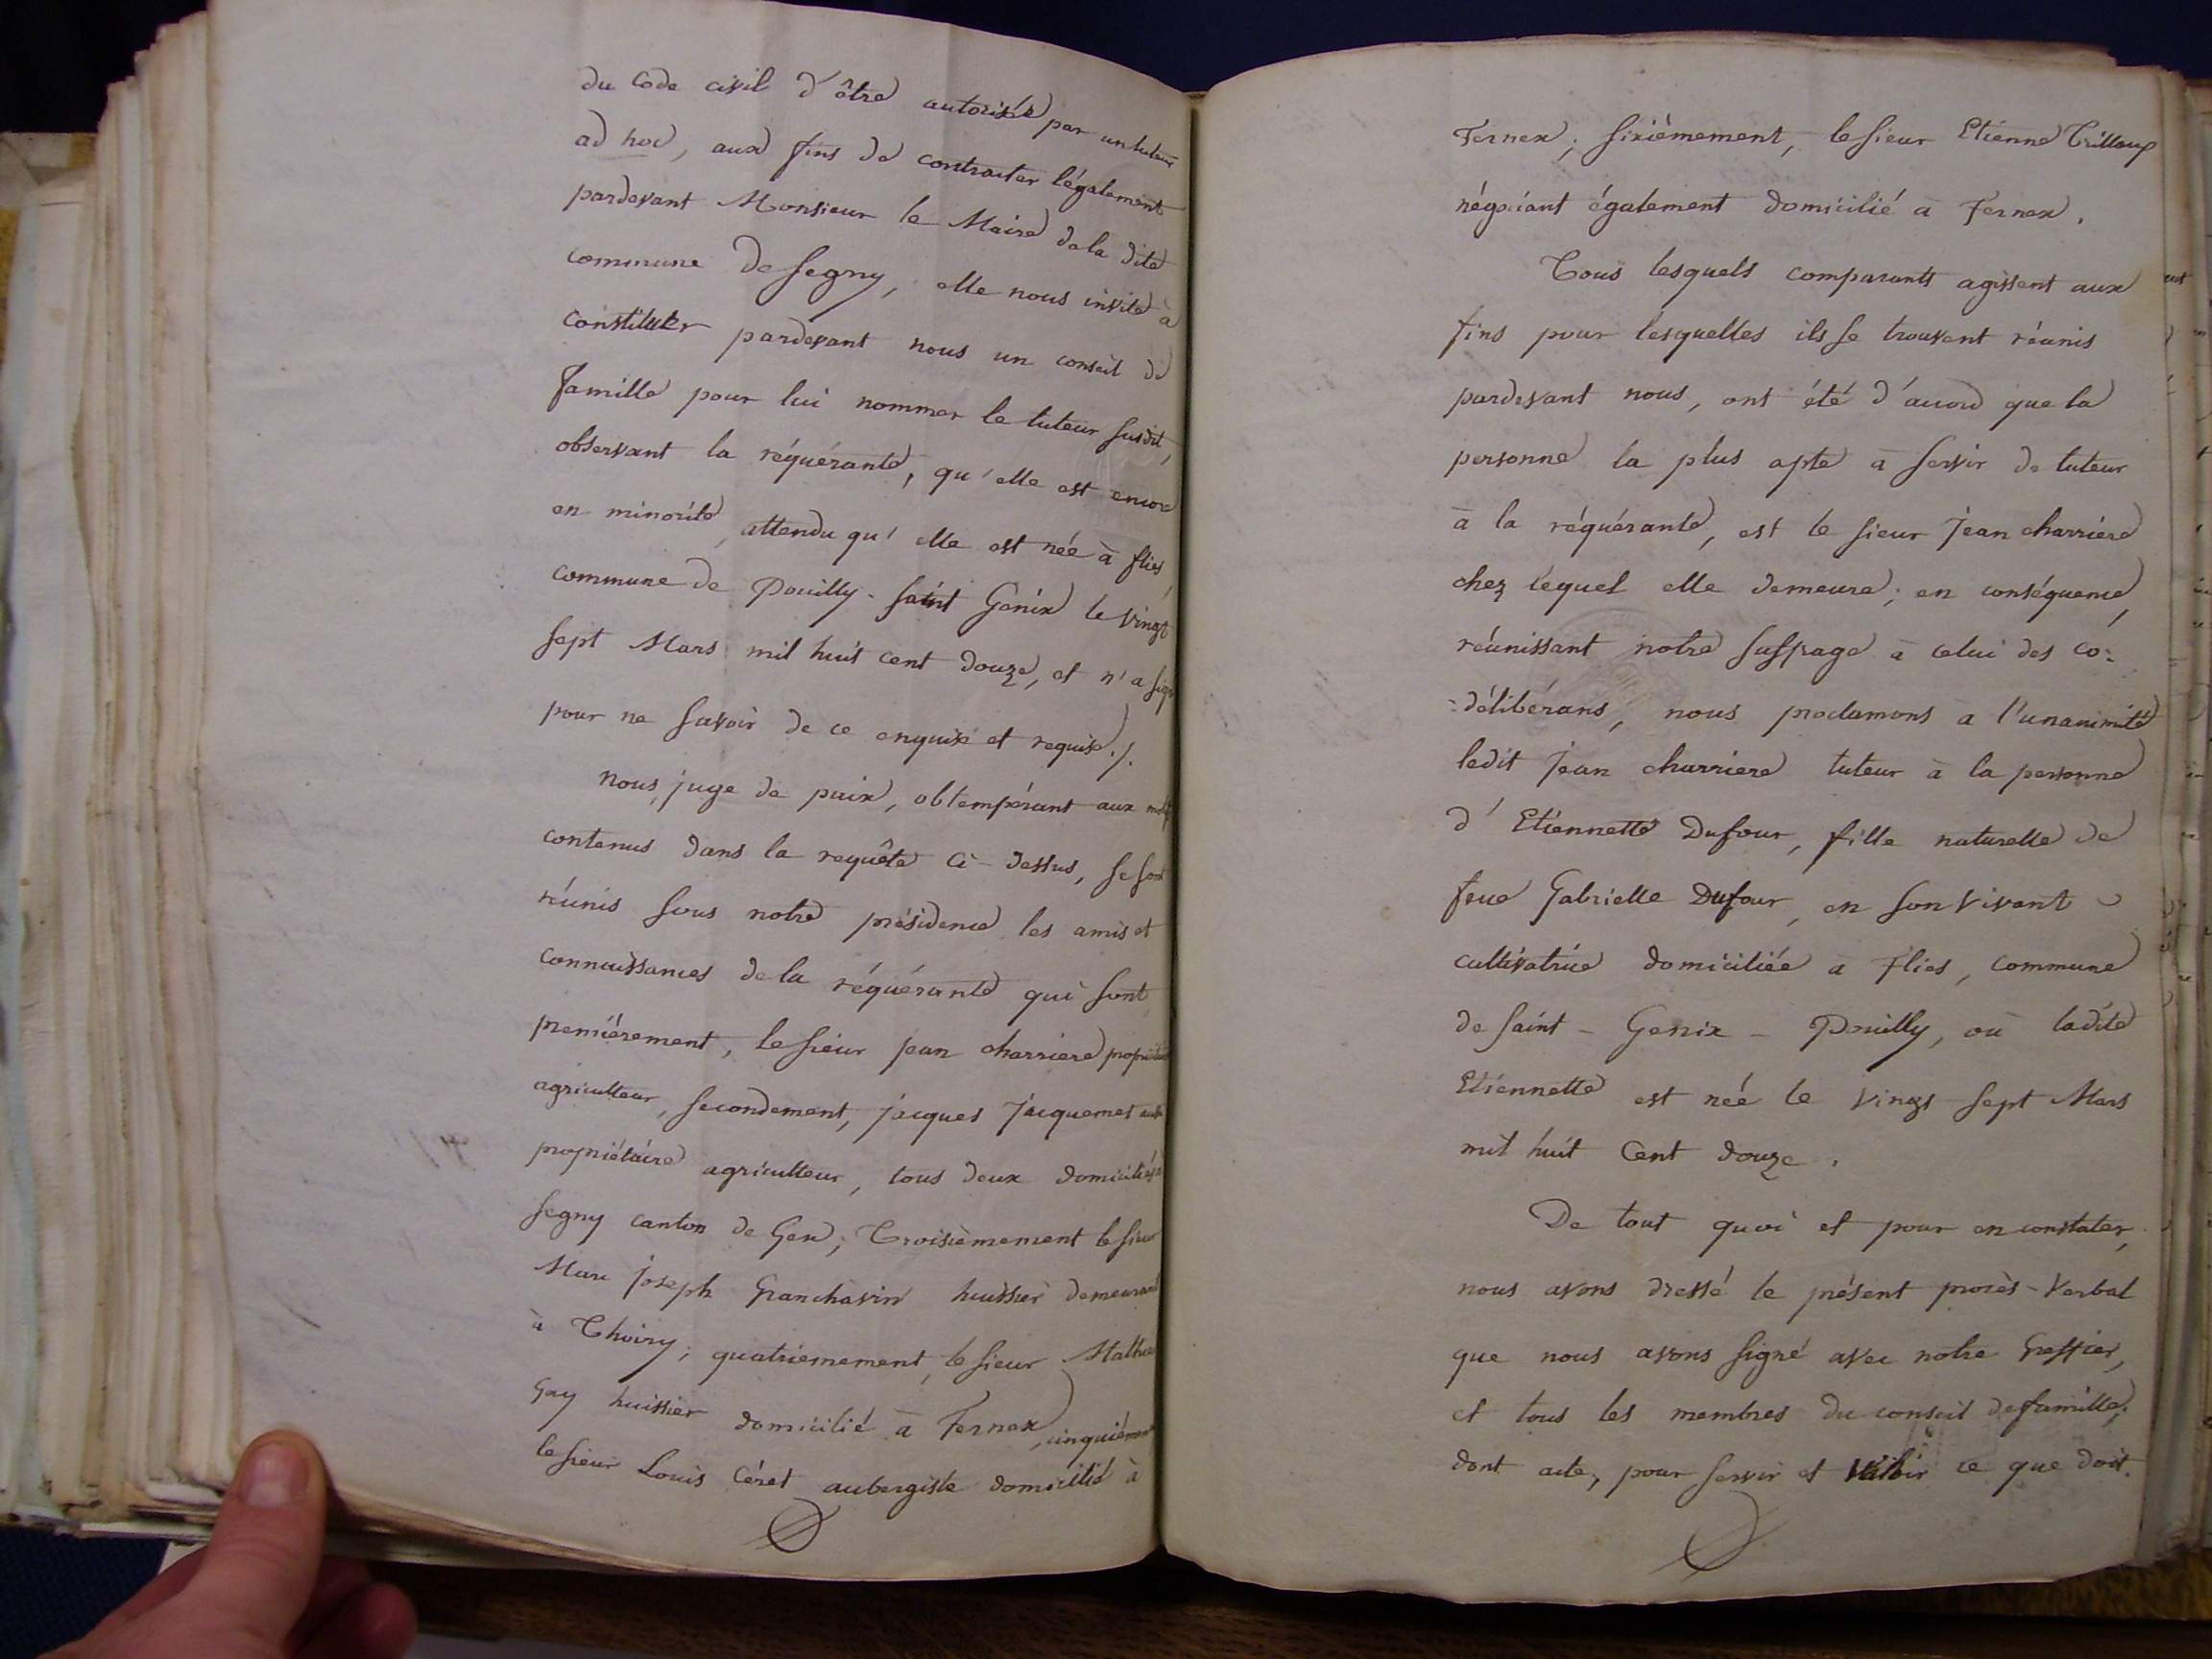 du Code civil d'être autorisée par un tuteur
ad hoc, aux fins de contracter légalement
pardevant Monsieur le Maire de la dite
commune de Segny, elle nous invite à
constituer pardevant nous un conseil de
famille pour lui nommer le tuteur susdit,
observant la réquérante, qu'elle est encore
en minorité, attendu qu'elle est née à flies,
commune de Pouilly-Saint Genix le vingt
sept Mars mil huit cent douze, et n'a signé
pour ne savoir de ce enquise et requise ./.
Nous, juge de paix, obtempérant aux
contenus dans la requête ci-dessus, se sont
réunis sous notre présidence les amis et
connaissances de la réquérante qui sont,
premièrement, le sieur Jean charriere propriétaire
agriculteur, secondement, jacques Jacquemet aussi
propriétaire agriculteur, tous deux domiciliés à
Segny canton de Gex; Troisièmement le sieur
Marc Joseph Granchavin huissier demeurant
à Thoiry; quatrièmement, le sieur Mathieu
Gay huissier domicilié à Fernex, cinquièmement
le sieur Louis Céret aubergiste domicilié à
Fernex; sixièmement, le sieur Etienne Trilloup
négociant également domicilié à Fernex.
Tous lesquels comparants agissent aux
fins pour lesquelles ils se trouvent réunis
pardevant nous, ont été d'accord que la
personne la plus apte à servir de tuteur
à la réquérante, est le sieur Jean charriere
chez lequel elle demeure; en conséquence,
réunissant notre suffrage à celui des co-
-délibérans, nous proclamons a l'unanimité
ledit Jean charriere tuteur à la personne
d'Etiennette Dufour, fille naturelle de
feue Gabrielle Dufour, en son vivant
cultivatrice domiciliée a Flies, commune
de Saint-Genix-Pouilly, où ladite
Etiennette est née le vingt sept Mars
mil huit Cent douze.
De tout quoi et pour en constater,
nous avons dressé le présent procès-verbal
que nous avons signé avec notre Greffier,
et tous les membres du conseil de famille;
dont acte, pour servir et valoir ce que doit.